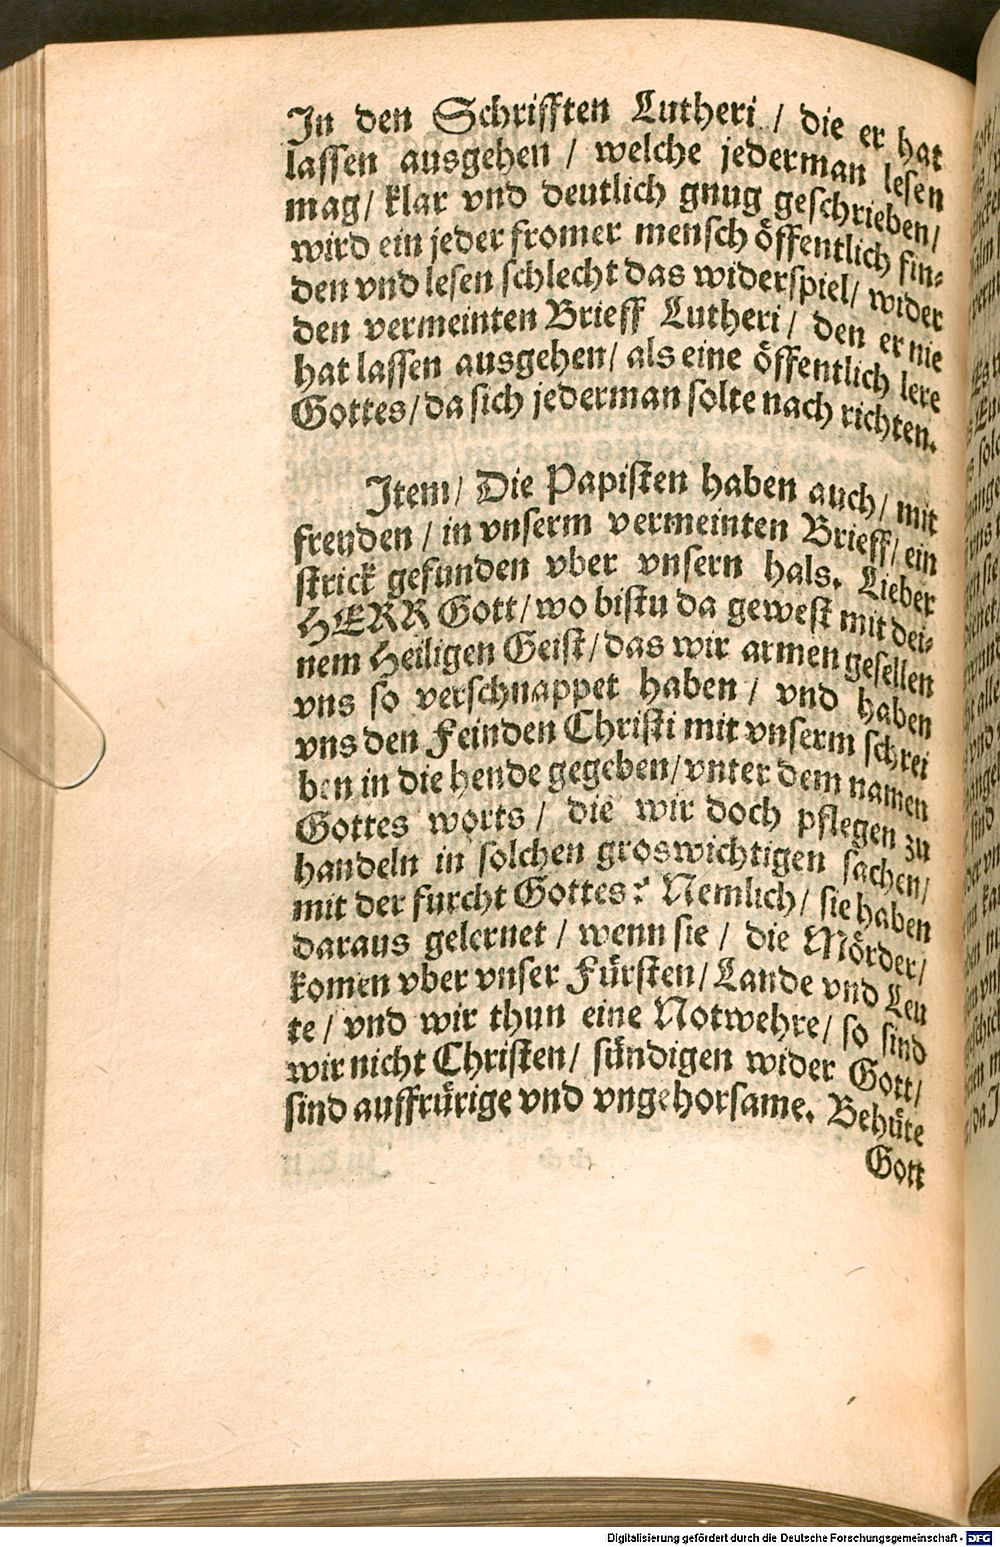 In den Schrifften Lutheri / die er hat
lassen ausgehen / welche jederman lesen
mag / klar vnd deutlich gnug geschrieben /
wird ein jeder fromer mensch öffentlich fin-
den vnd lesen schlecht das widerspiel / wider
den vermeinten Brieff Lutheri / den er nie
hat lassen ausgehen / als eine öffentlich lere
Gottes / da sich jederman solte nach richten.
Item / Die Papisten haben auch / mit
freyden / in vnserm vermeinten Brieff / ein
strick gefunden vber vnsern hals. Lieber
HERR Gott / wo bistu da gewest mit dei-
nem Heiligen Geist / das wir armen gesellen
vns so verschnappet haben / vnd haben
vns den Feinden Christi mit vnserm schrei
ben in die hende gegeben / vnter dem namen
Gottes worts / die wir doch pflegen zu
handeln in solchen groswichtigen sachen /
mit der furcht Gottes? Nemlich / sie haben
daraus gelernet / wenn sie / die Mörder /
komen vber vnser Fürsten / Lande vnd Leu
te / vnd wir thun eine Notwehre / so sind
wir nicht Christen / sündigen wider Gott /
sind auffrürige vnd vngehorsame. Behüte
Gott
Digitalisierung gefördert durch die Deutsche Forschungsgemeinschaft - DFG